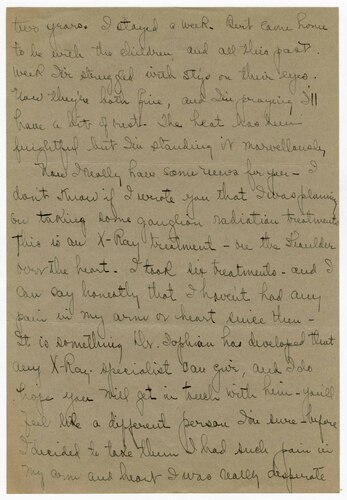 two years. I stayed a week. Bert came home
to be with the children and all this past
week I've struggled with stys on their eyes.
Now they're both fine, and I'm praying I'll
have a bit of rest. The heat has been
frightful but I'm standing it marvellously.
Now I really have some news for you - I
don't know if I wrote you that I was planning
on taking some ganglion radiation treatments
This is an X-Ray treatment - on the shoulder
over the heart. I took six treatments - and I
can say honestly that I haven't had any
pain in my arm or heart since then -
It is something Dr. Sophian has developed that
any X-Ray specialist can give, and I do
hope you will get in touch with him - you'll
feel like a different person I'm sure - before
I decided to take them I had such pain in
my arm and heart I was really desperate